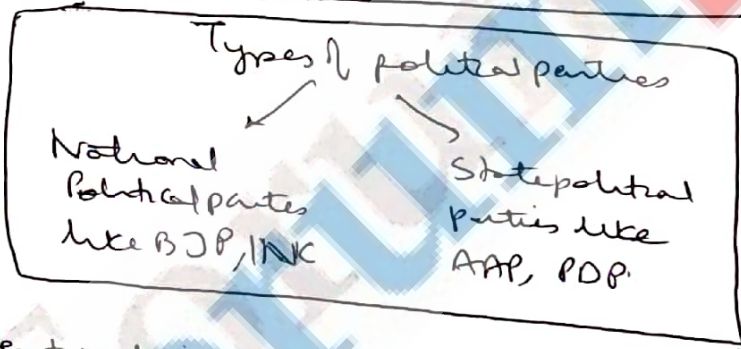 Types of political parties
National
Political parties
like BJP, INC
State political
parties like
AAP, PDP.